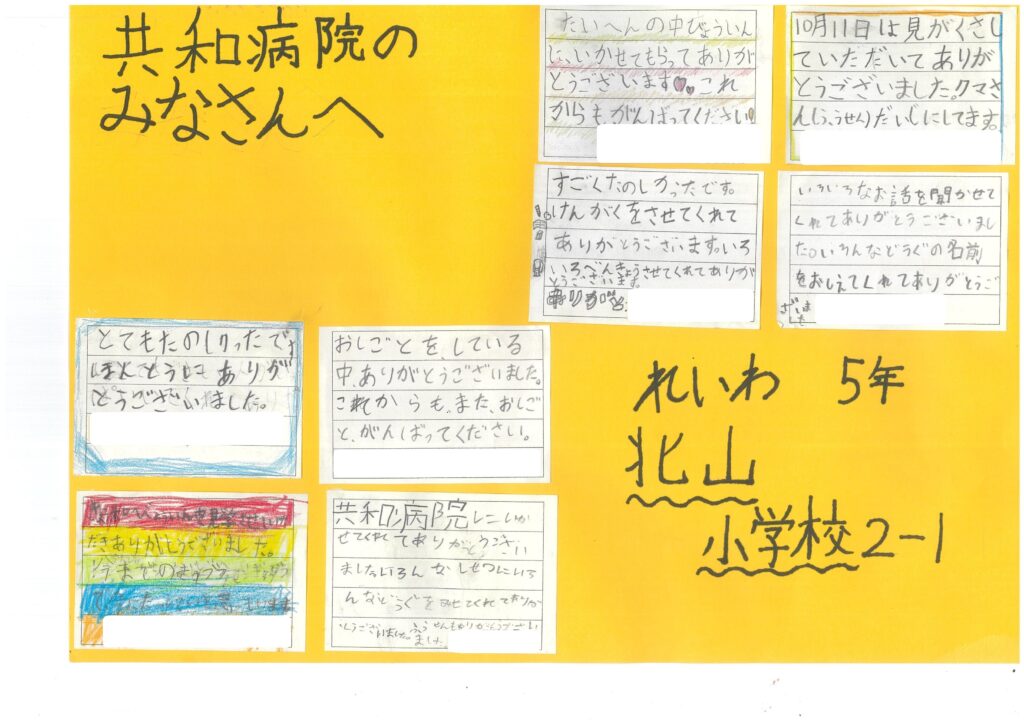 共和病院の
みなさんへ
たいへんの中びょういん
にいかせてもらってありが
とうございます これ
からもがんばってください!
10月11日は見がくさし
ていただいてありが
とうございました。クマさ
ん(ふうせん)だいじにしてます。
すごくたのしかったです。
けんがくをさせてくれて
ありがとうございます。いろ
いろべんきょうさせてくれてありが
とうございます。
いろいろなお話を聞かせて
くれてありがとうございまし
た。いろんなどうぐの名前
をおしえてくれてありがとうご
ざいま
した
とてもたのしかったです
ほんとうにありが
とうございました。
おしごとを、している
中、ありがとうございました。
これからも。また、おしご
と、がんばってください。
れいわ 5年
北山
小学校2-1
だきありがとうございました。
今までの
共和病院にいか
せてくれてありがとうござい
ました。いろんなしせつにいろ
んなどうぐをみせてくれてありが
とうございました。ふうせんもありがとうござい
ました